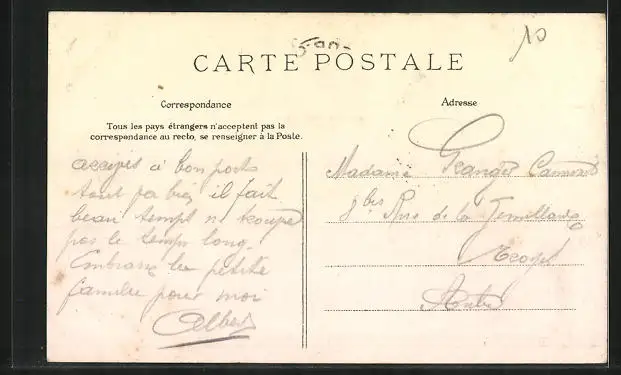 10
5-90-
CARTE POSTALE
Correspondance
Adresse
Tous les pays étrangers n'acceptent pas la
correspondance au recto, se renseigner à la Poste.
arrives a bon ports
tout va bien il fait
beau tempt ne trouve
pas le temps long.
Embrasse la petite
famille pour moi
Albert
Madame Granger
8 bis Rue de la
Troyes
Aube